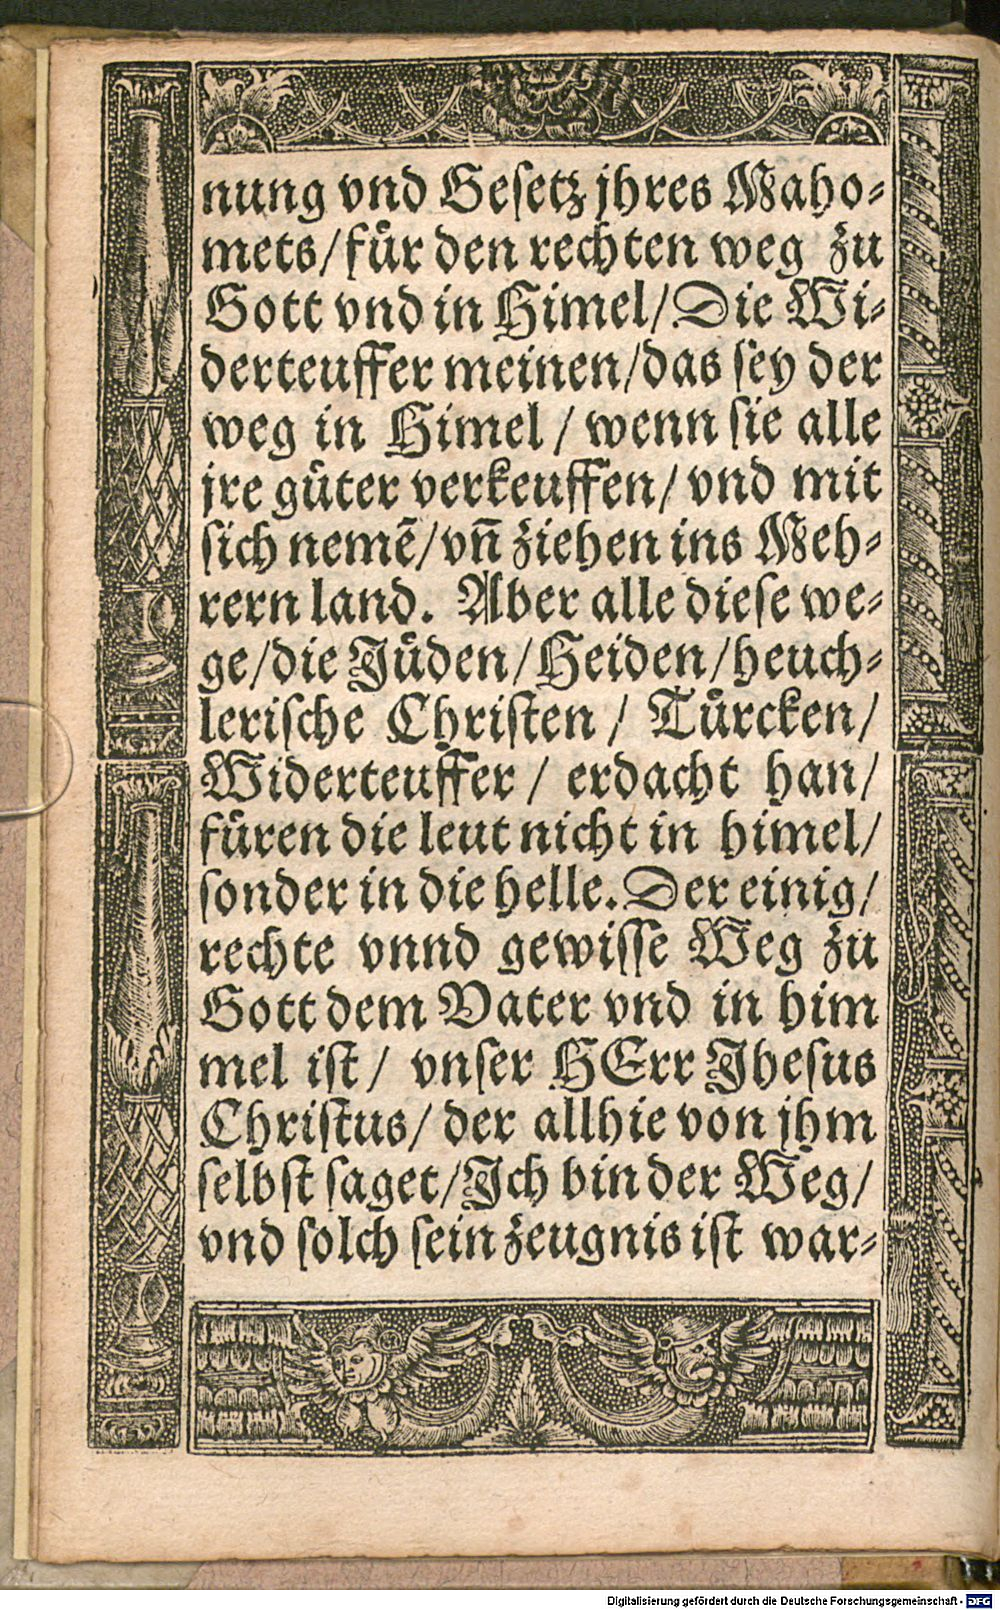 nung vnd Gesetz jhres Maho-
mets/für den rechten weg zu
Gott vnd in Himel/Die Wi-
derteuffer meinen/das sey der
weg in Himel / wenn sie alle
jre güter verkeuffen/ vnd mit
sich nemē/vn̄ ziehen ins Meh-
rern land. Aber alle diese we-
ge/die Jüden/Heiden/heuch-
lerische Christen / Türcken/
Widerteuffer / erdacht han/
füren die leut nicht in himel/
sonder in die helle. Der einig/
rechte vnnd gewisse Weg zu
Gott dem Vater vnd in him
mel ist/ vnser HErr Jhesus
Christus/ der allhie von jhm
selbst saget/Ich bin der Weg/
vnd solch sein zeugnis ist war-
Digitalisierung gefördert durch die Deutsche Forschungsgemeinschaft - DFG